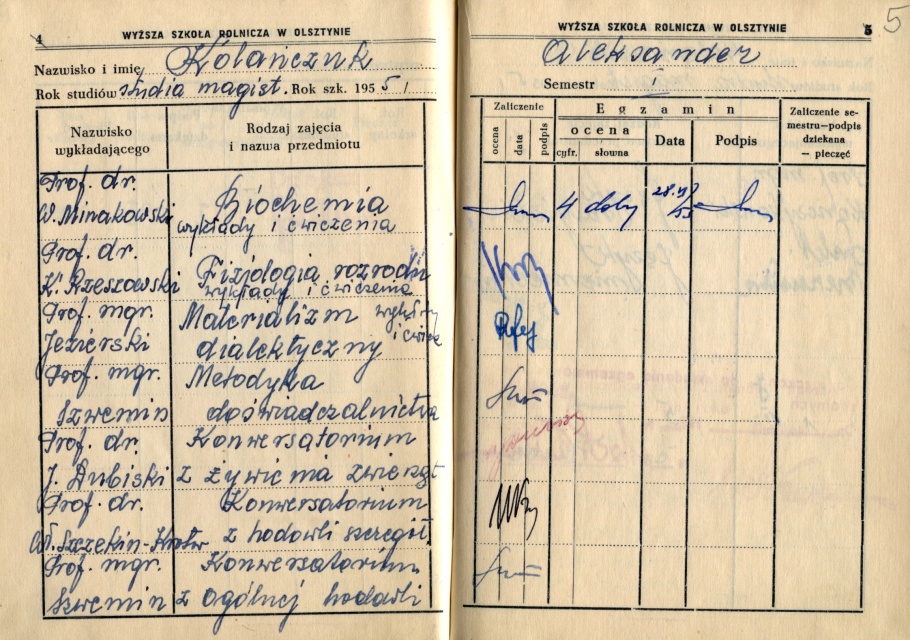 4 WYŻSZA SZKOŁA ROLNICZA W OLSZTYNIE
Nazwisko i imię Kołańczuk
Rok studiów studia magist. Rok szk. 1955/
Nazwisko wykładającego
Rodzaj zajęcia i nazwa przedmiotu
Prof. dr.
W. Minakowski Biochemia
wykłady i ćwiczenia
Prof. dr.
K. Rzeszowski Fizjologia rozrodu
wykłady i ćwiczenia
Prof. mgr. Materializm wykłady
Jezierski dialektyczny i ćwicz
Prof. mgr. Metodyka
Szwemin doświadczalnictwa
Prof. dr. Konwersatorium
J. Dubiski z żywienia zwierząt
Prof. dr. Konwersatorium
z hodowli szczegół.
Prof. mgr. Konwersatorium
Szwemin z ogólnej hodowli
WYŻSZA SZKOŁA ROLNICZA W OLSZTYNIE 5
5
Aleksander
Semestr I
Zaliczenie
ocena
data
podpis
Egzamin
ocena
cyfr. słowna
Data
Podpis
Zaliczenie se-
mestru—podpis
dziekana
— pieczęć
4 dobry